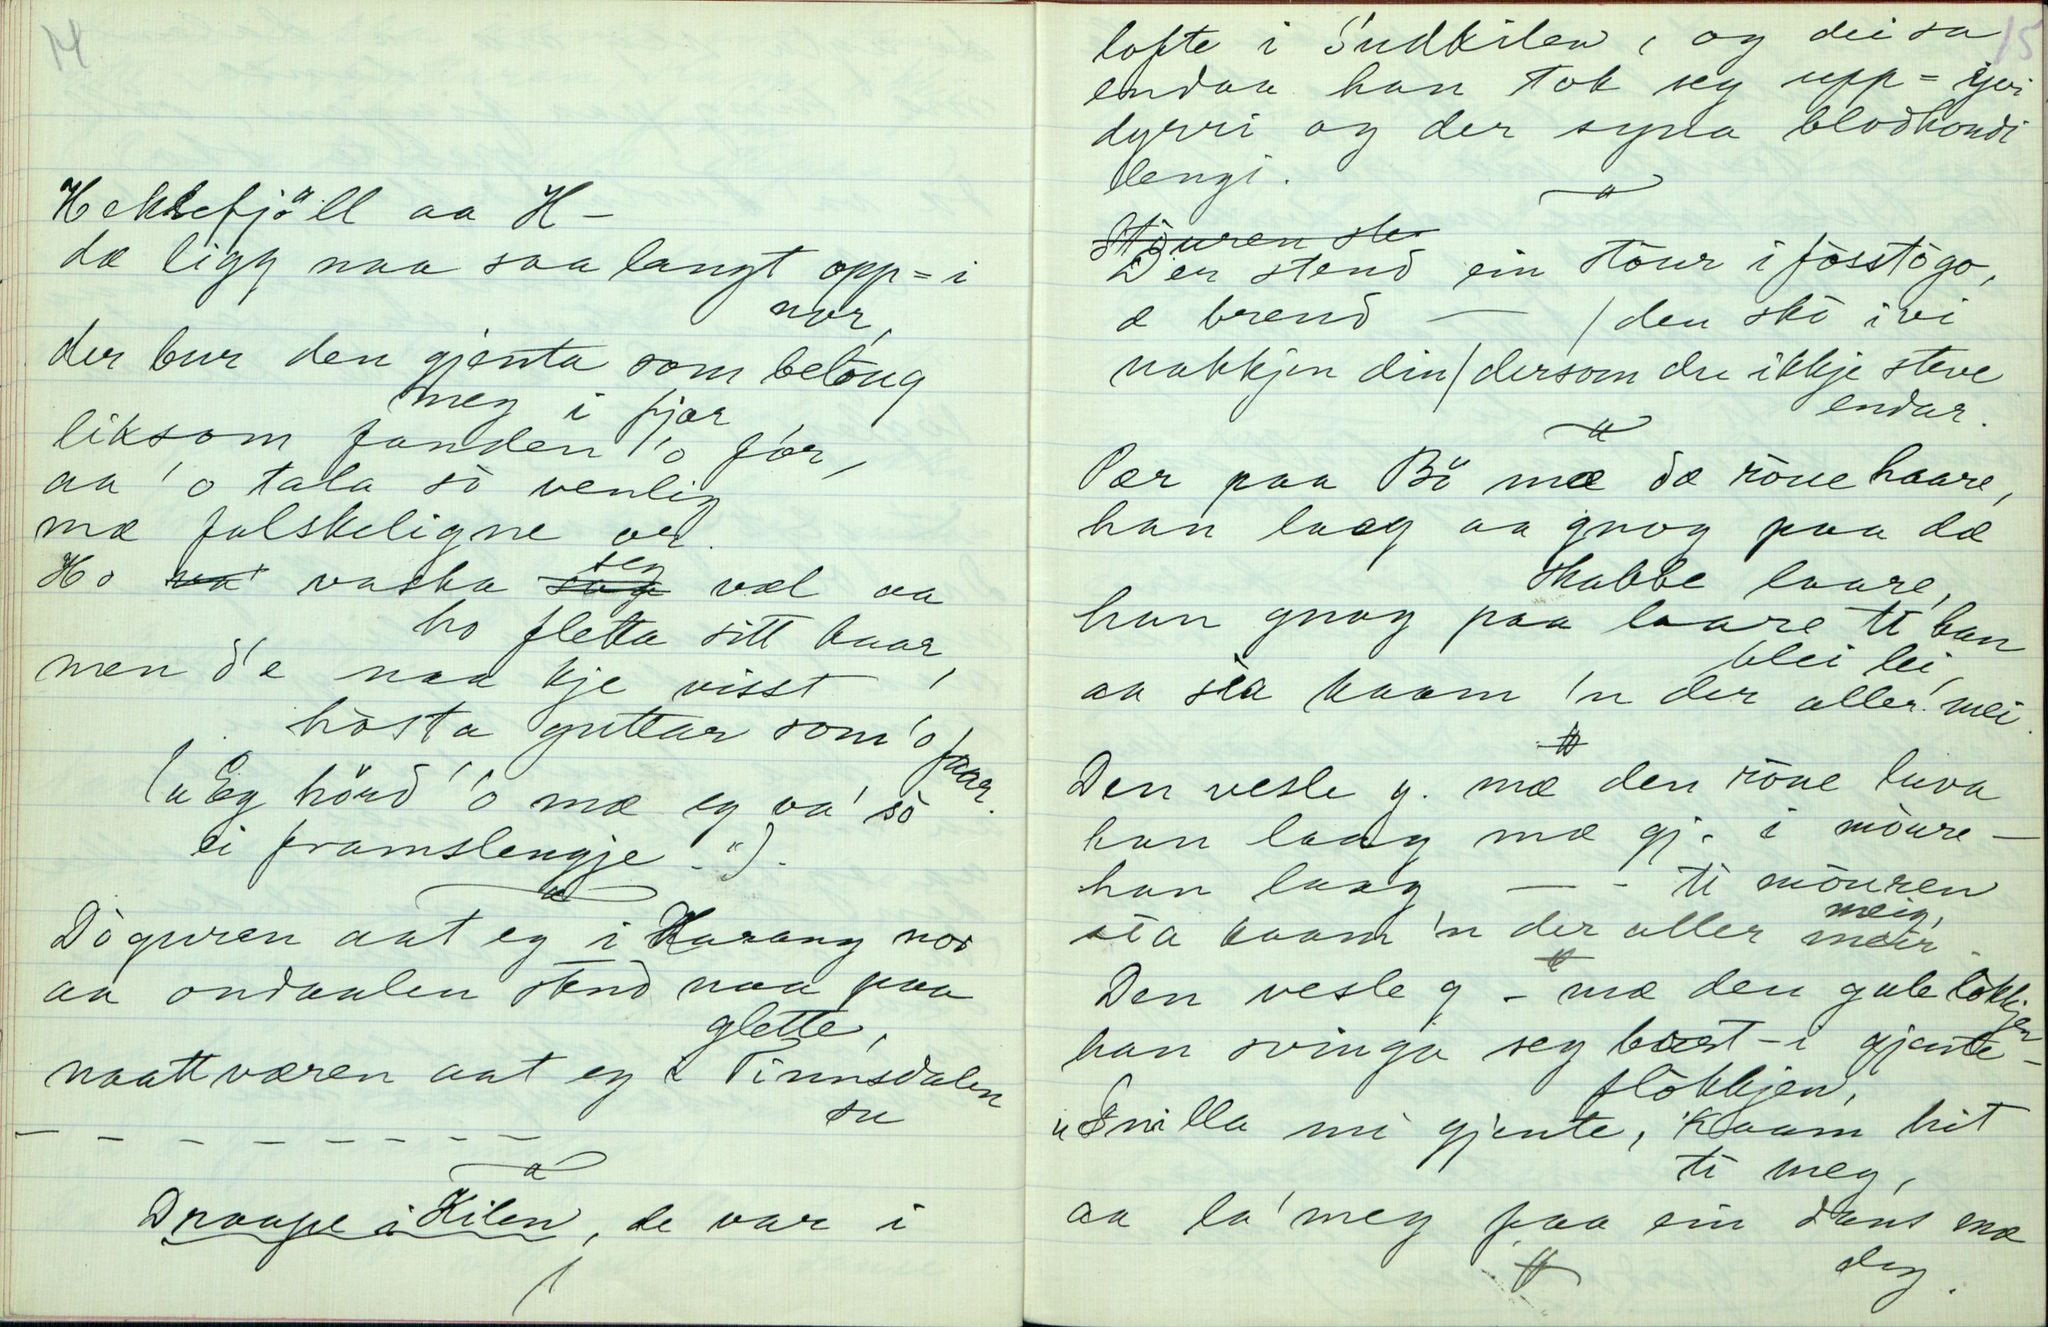 14
Heksefjöll aa H-
dæ ligg naa saa langt opp=i
nor,
der bur den gjenta som betoug
meg i fjor
liksom fanden 'o for,
aa 'o tala so venlig
mæ falskeligne or.
Ho va' vaska sog seg væl aa
ho fletta sitt haar,
men d'e naa kje visst
hosta guttar som 'o faar.
("Eg hörd 'o mæ eg va' so
ei framslengje.").
Döguren aat eg i Harang nor
aa ondaalen stend naa paa
glette,
naattværen aat eg i Tinnsdalen
su
— — — — — — — —
Draape i Kilen, de var i
15
lofte i Sudkilen, og dei sa
endaa han tok seg upp=yvi
dyrri og der syna blodhondi
lengi.
Stouren sko
Der stend ein stour i fosstogo,
o brend — / den sko ivi
nakkjen din / dersom du ikkje steve
endar.
Pær paa Bö mæ dæ roue haare,
han laag aa gnog paa dæ
skabbe laare,
han gnog paa laare ti han
blei lei,
aa sia kaam 'n der aller mei.
Den vesle g. mæ den roue luva
han laag mæ gj. i moure —
han laag — - ti mouren
sia kaam 'n der aller meir meig.
Den vesle g - mæ den gule lokkjen
han svinga seg bort-i gjente-
flokkjen,
"Snilla mi gjente, kaam hit
ti meg,
aa la' meg faa ein dans mæ
deg.